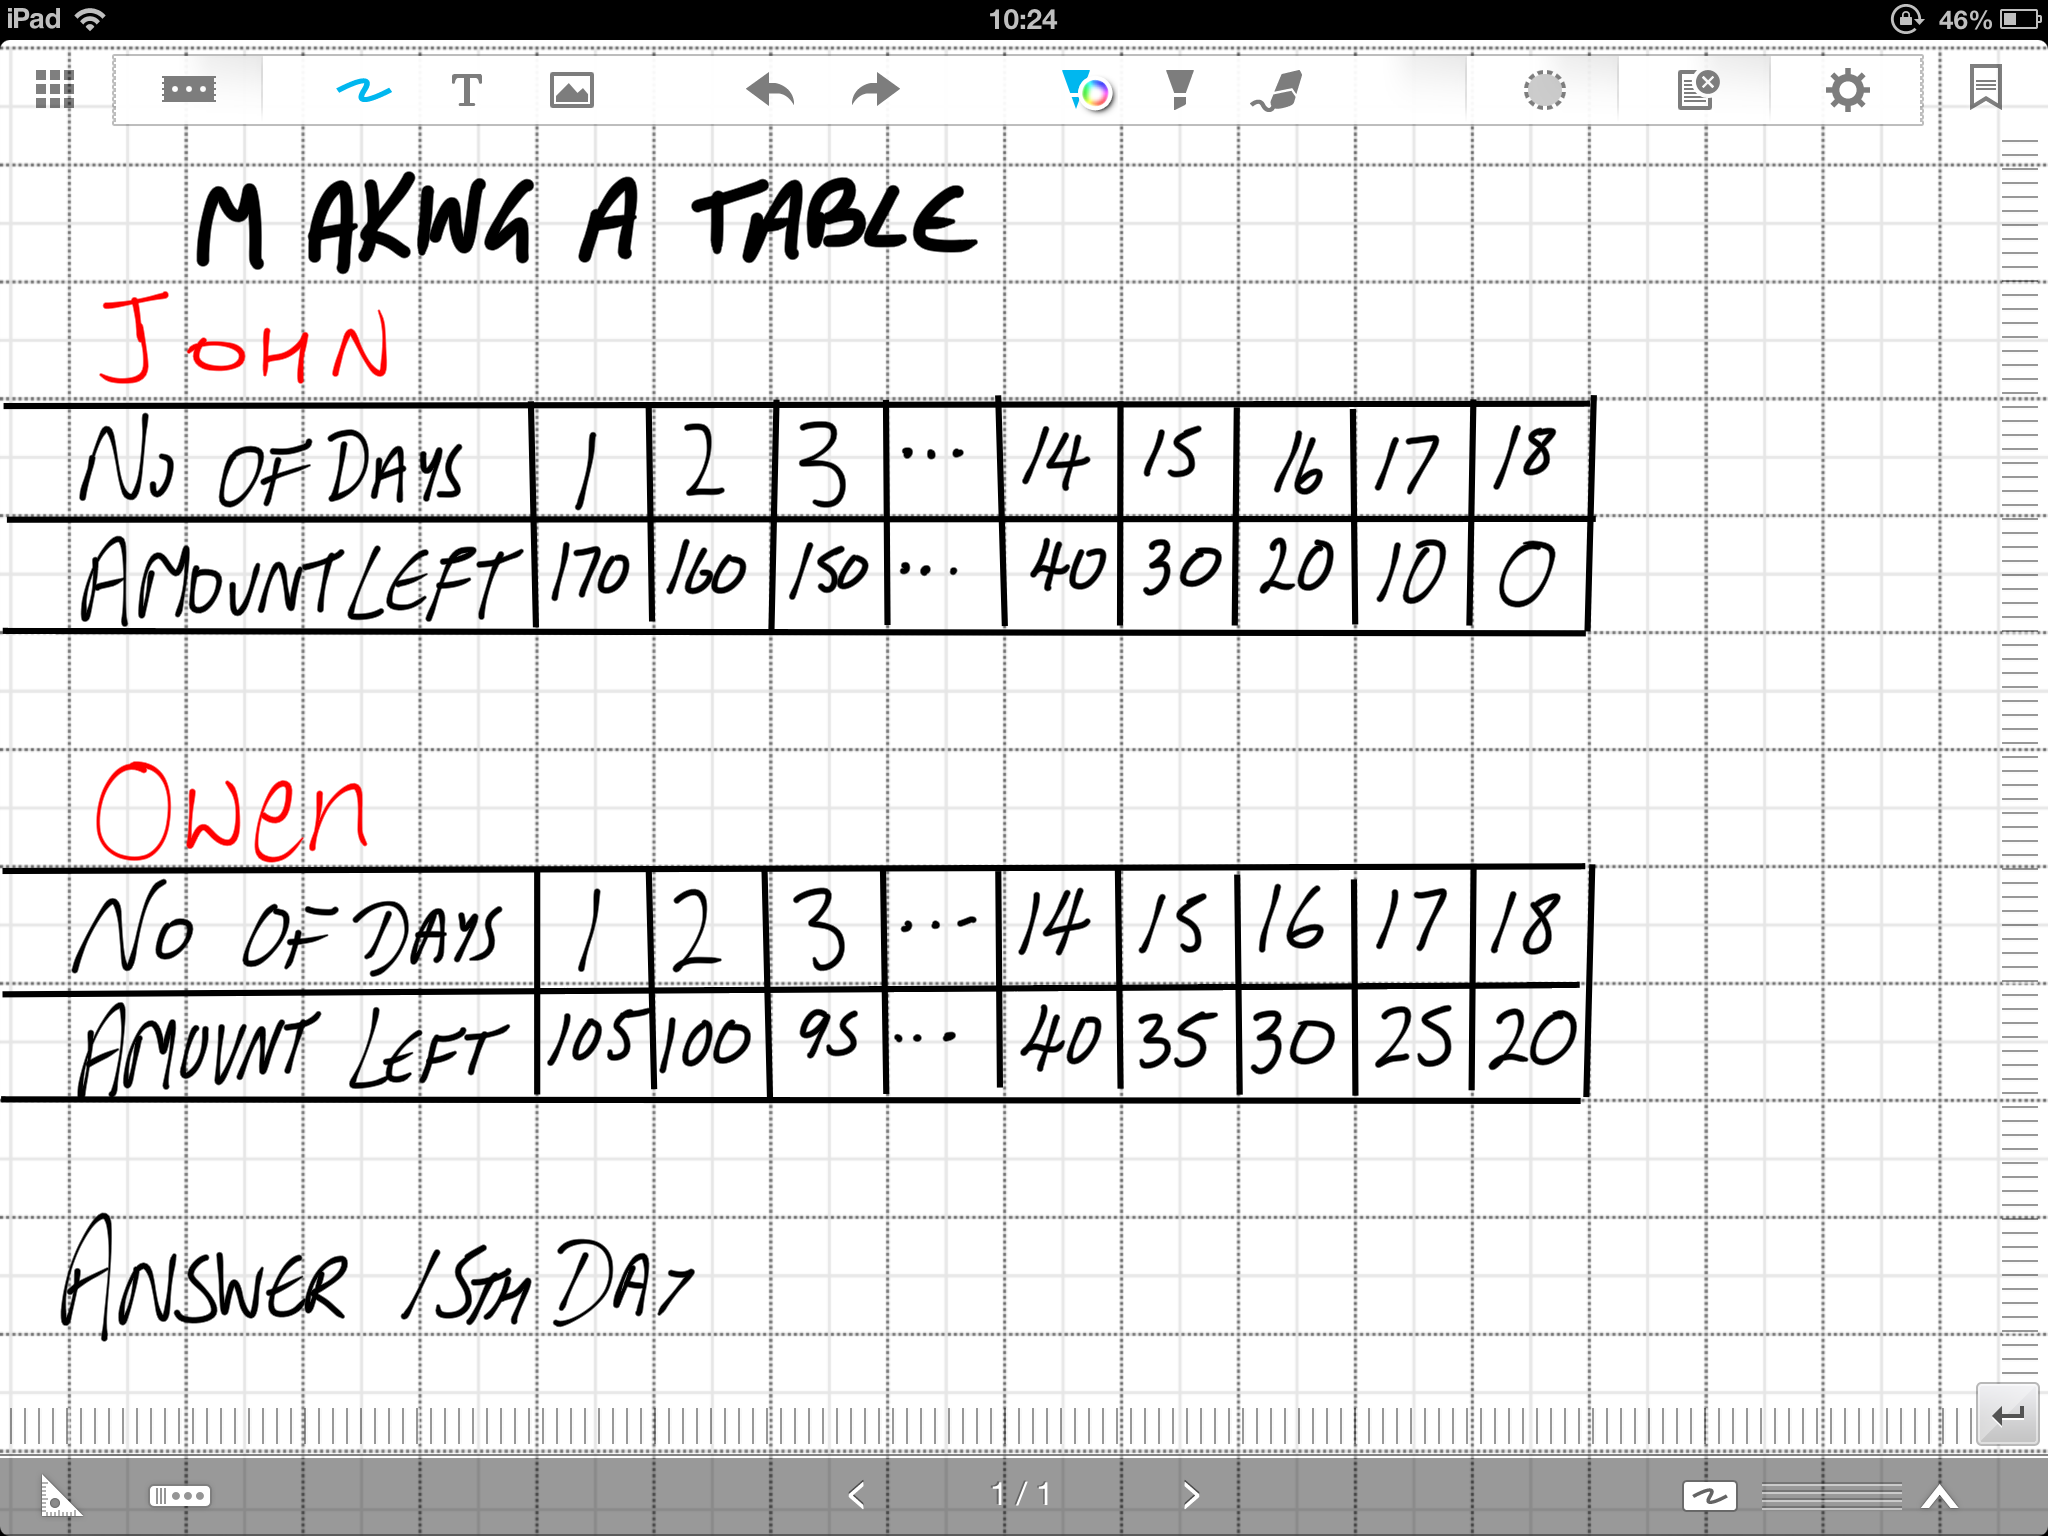 iPad 10:24 46%
T
MAKING A TABLE
JOHN
No OF DAYS 1 2 3 ... 14 15 16 17 18
AMOUNT LEFT 170 160 150 ... 40 30 20 10 0
Owen
No OF DAYS 1 2 3 ... 14 15 16 17 18
AMOUNT LEFT 105 100 95 ... 40 35 30 25 20
ANSWER 15TH DAY
1 / 1